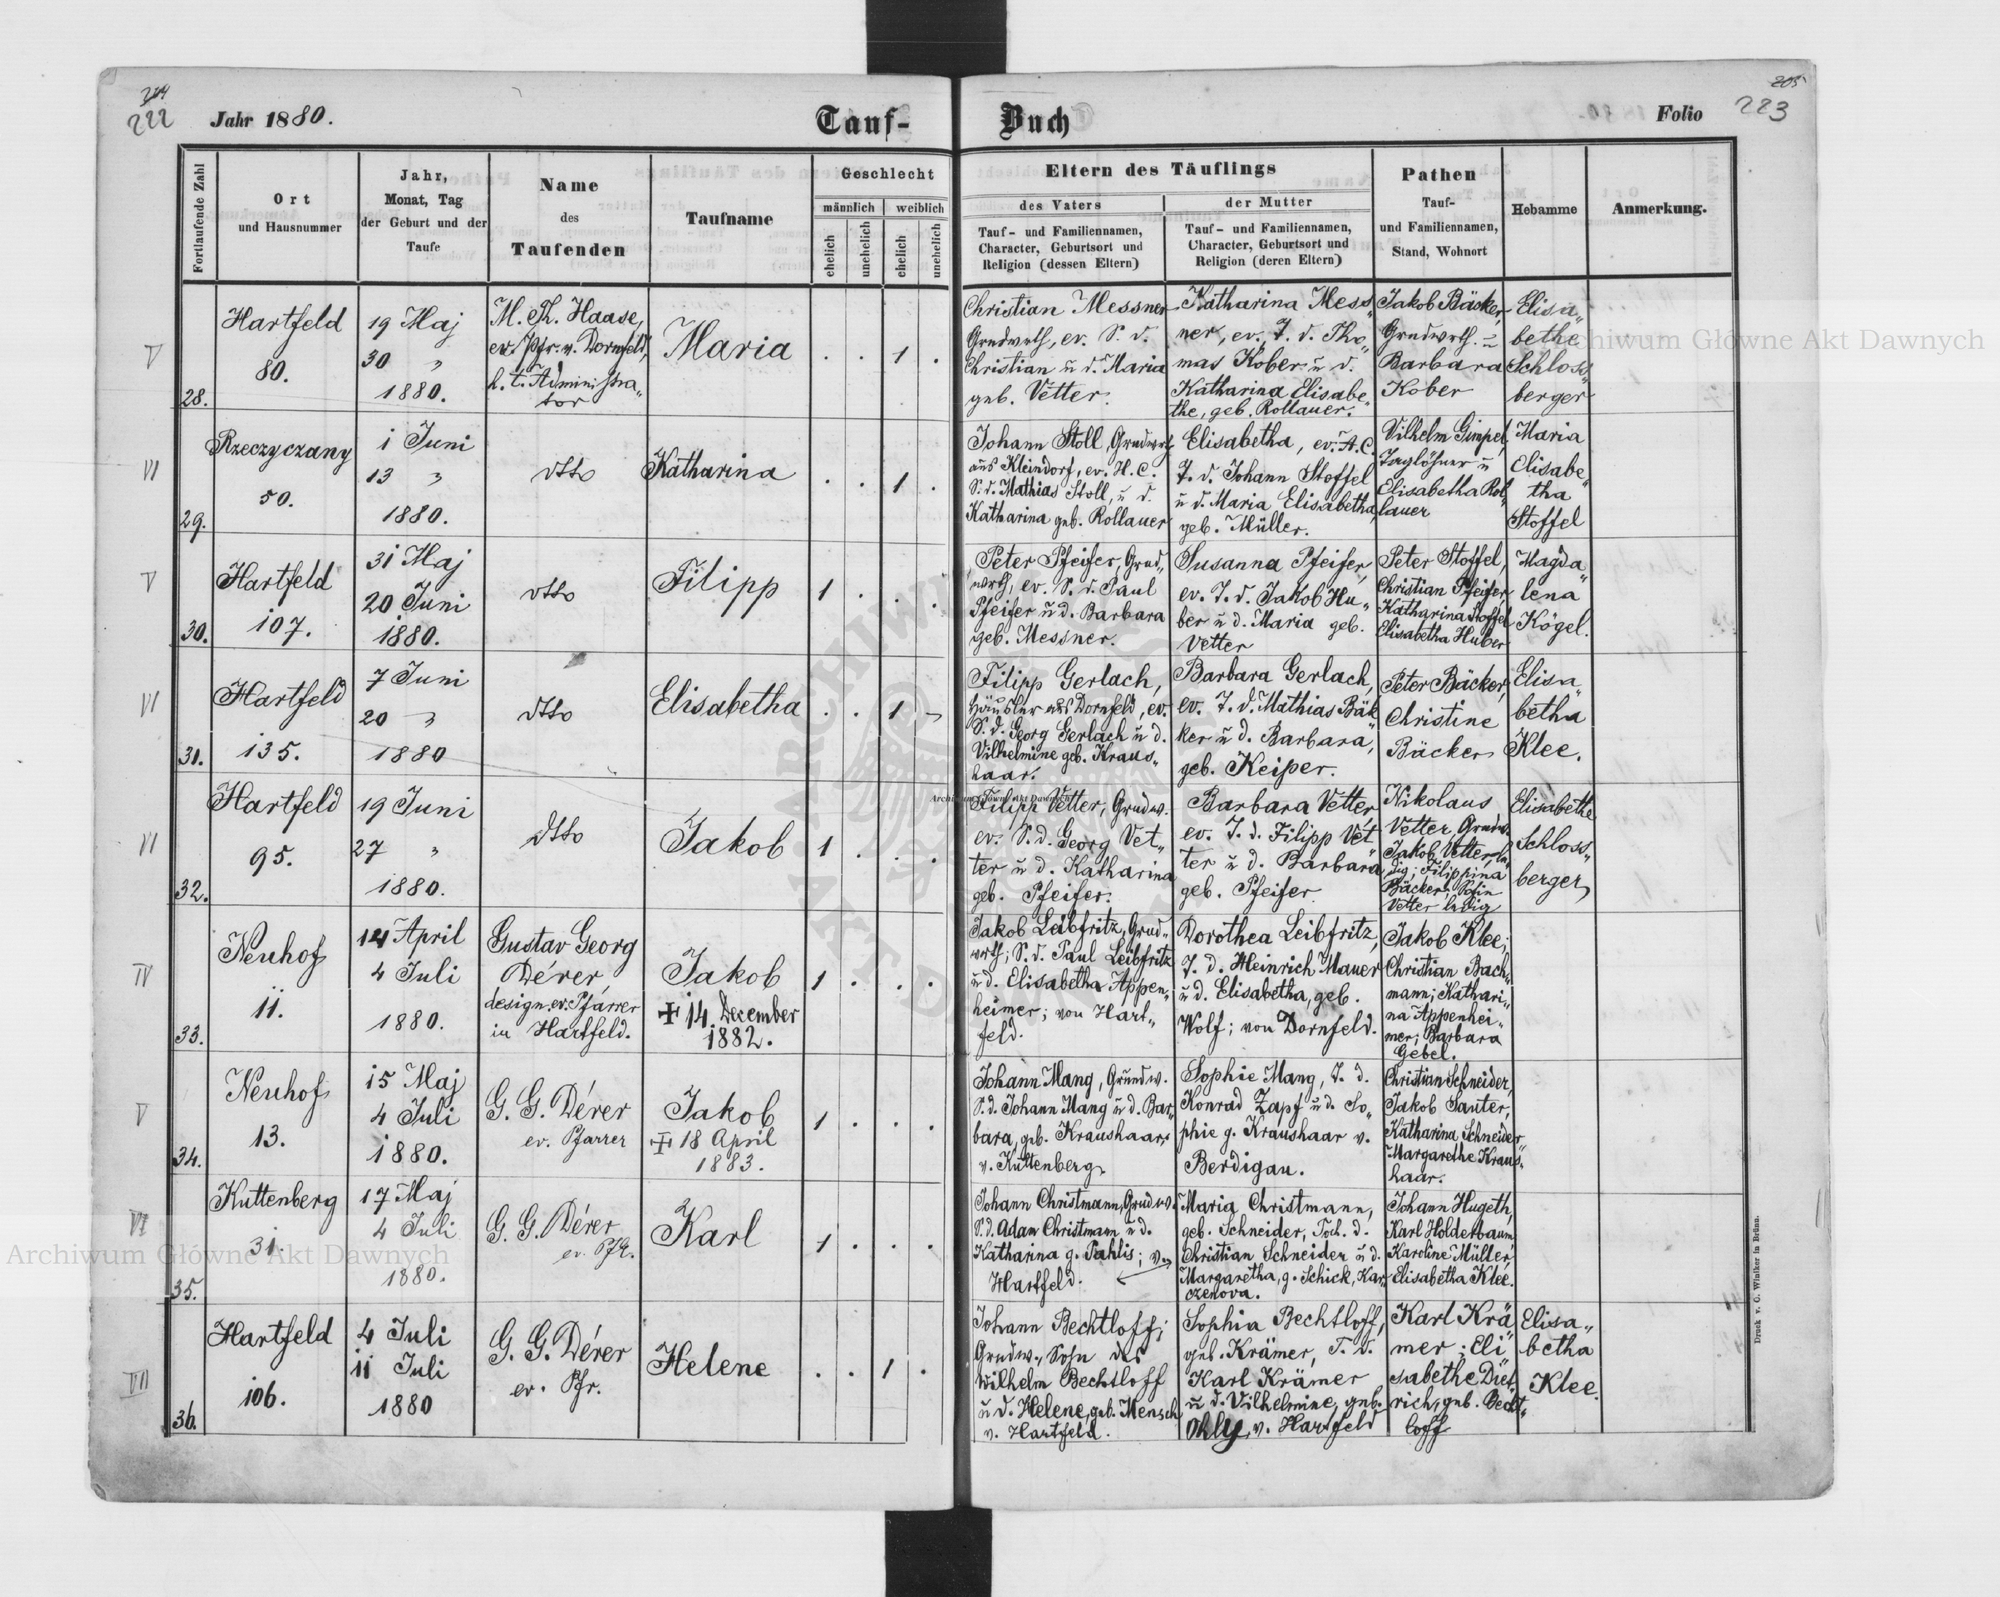 204
222
Jahr 1880.
Tauf-
Buch
Folio
205
223
Fortlaufende Zahl
Ort
und Hausnummer
Jahr,
Monat, Tag
der Geburt und der
Taufe
Name
des
Taufenden
Taufname
Geschlecht
männlich
weiblich
ehelich
unehelich
ehelich
unehelich
Eltern des Täuflings
des Vaters
Tauf- und Familiennamen,
Character, Geburtsort und
Religion (dessen Eltern)
der Mutter
Tauf- und Familiennamen,
Character, Geburtsort und
Religion (deren Eltern)
Pathen
Tauf-
und Familiennamen,
Stand, Wohnort
Hebamme
Anmerkung.
V
28.
Hartfeld
80.
19 Maj
30 "
1880.
M. Th. Haase,
ev. Pfr. v. Dornfeld,
h. t. Administra„
tor
Maria
. . 1 .
Christian Messner
Grndwrth, ev. S. d.
Christian u d. Maria
geb. Vetter.
Katharina Mess„
ner, ev. T. d. Tho„
mas Kober u d.
Katharina Elisabe„
the, geb. Rollauer.
Jakob Bäcker,
Grndwrth. u
Barbara
Kober
Elisa„
bethe
Schloss„
berger
VI
29.
Rzeczyczany
50.
1 Juni
13 "
1880.
dtto
Katharina
. . 1 .
Johann Stoll, Grndwrth
aus Kleindorf, ev. H. C.
S. d. Mathias Stoll, u d.
Katharina geb. Rollauer
Elisabetha, ev. A. C.
T. d. Johann Stoffel
u d. Maria Elisabetha,
geb. Müller.
Vilhelm Gimpel,
Taglöhner u
Elisabetha Rol„
lauer
Maria
Elisabe„
tha
Stoffel
V
30.
Hartfeld
107.
31 Maj
20 Juni
1880.
dtto
Filipp
1 . . .
Peter Pfeifer, Grnd„
wrth, ev. S. d. Paul
Pfeifer u d. Barbara
geb. Messner.
Susanna Pfeifer,
ev. T. d. Jakob Hu„
ber u d. Maria geb.
Vetter
Peter Stoffel,
Christian Pfeifer,
Katharina Stoffel
Elisabetha Huber
Magda„
lena
Kögel.
VI
31.
Hartfeld
135.
7 Juni
20 "
1880
dtto
Elisabetha
. . 1 -
Filipp Gerlach,
Häusler aus Dornfeld, ev.
S. d. Georg Gerlach u d.
Vilhelmine geb. Kraus„
haar.
Barbara Gerlach,
ev. T. d. Mathias Bäk„
ker u d. Barbara,
geb. Keiper.
Peter Bäcker,
Christine
Bäcker
Elisa„
betha
Klee.
VI
32.
Hartfeld
95.
19 Juni
27 "
1880.
dtto
Jakob
1 . . .
Filipp Vetter, Grndw.
ev. S. d. Georg Vet„
ter u d. Katharina
geb. Pfeifer.
Barbara Vetter,
ev. T. d. Filipp Vet„
ter u d. Barbara
geb. Pfeifer
Nikolaus
Vetter, Grndw.
Jakob Vetter, le„
dig; Filippina
Bäcker, Sofin
Vetter ledig
Elisabethe
Schloss„
berger
IV
33.
Neuhof
11.
14 April
4 Juli
1880.
Gustav Georg
Dérer
design. ev. Pfarrer
in Hartfeld.
Jakob
✝ 14 December
1882.
1 . . .
Jakob Leibfritz, Grnd„
wrth; S. d. Paul Leibfritz
u d. Elisabetha Appen„
heimer; von Hart„
feld.
Dorothea Leibfritz,
T. d. Heinrich Mauer
u d. Elisabetha, geb.
Wolf; von Dornfeld.
Jakob Klee;
Christian Bach„
mann; Kathari„
na Appenhei„
mer; Barbara
Gebel.
V
34.
Neuhof
13.
15 Maj
4 Juli
1880.
G. G. Dérer
ev. Pfarrer
Jakob
✝ 18 April
1883.
1 . . .
Johann Mang, Grundw.
S. d. Johann Mang u d. Bar„
bara, geb. Kraushaar
v. Kuttenberg.
Sophie Mang, T. d.
Konrad Zapf u d. So„
phie g. Kraushaar v.
Berdigau.
Christian Schneider,
Jakob Sauter,
Katharina Schneider„
Margarethe Kraus„
haar.
VI
35.
Kuttenberg
31.
17 Maj
4 Juli
1880.
G. G. Dérer
ev. Pfr.
Karl
1 . . .
Johann Christmann, Grndw.
S. d. Adam Christmann u d.
Katharina g. Pahlis; v.
Hartfeld.
Maria Christmann,
geb. Schneider, Toch. d.
Christian Schneider u d.
Margaretha, g. Schick, Kar„
czenova.
Johann Hugeth,
Karl Holderbaum
Karoline Müller,
Elisabetha Klee.
VII
36.
Hartfeld
106.
4 Juli
11 Juli
1880
G. G. Dérer
ev. Pfr.
Helene
. . 1 .
Johann Bechtloff;
Grndw., Sohn des
Wilhelm Bechtloff
u d. Helene, geb. Mensch
v. Hartfeld.
Sophia Bechtloff,
geb. Krämer, T. d.
Karl Krämer
u d. Vilhelmine, geb.
Ohly, v. Hartfeld
Karl Krä„
mer; Eli„
sabethe Diet„
rich, geb. Becht„
loff
Elisa„
betha
Klee.
Druck v. C. Winiker in Brünn.
Archiwum Główne Akt Dawnych
Archiwum Główne Akt Dawnych
Archiwum Główne Akt Dawnych